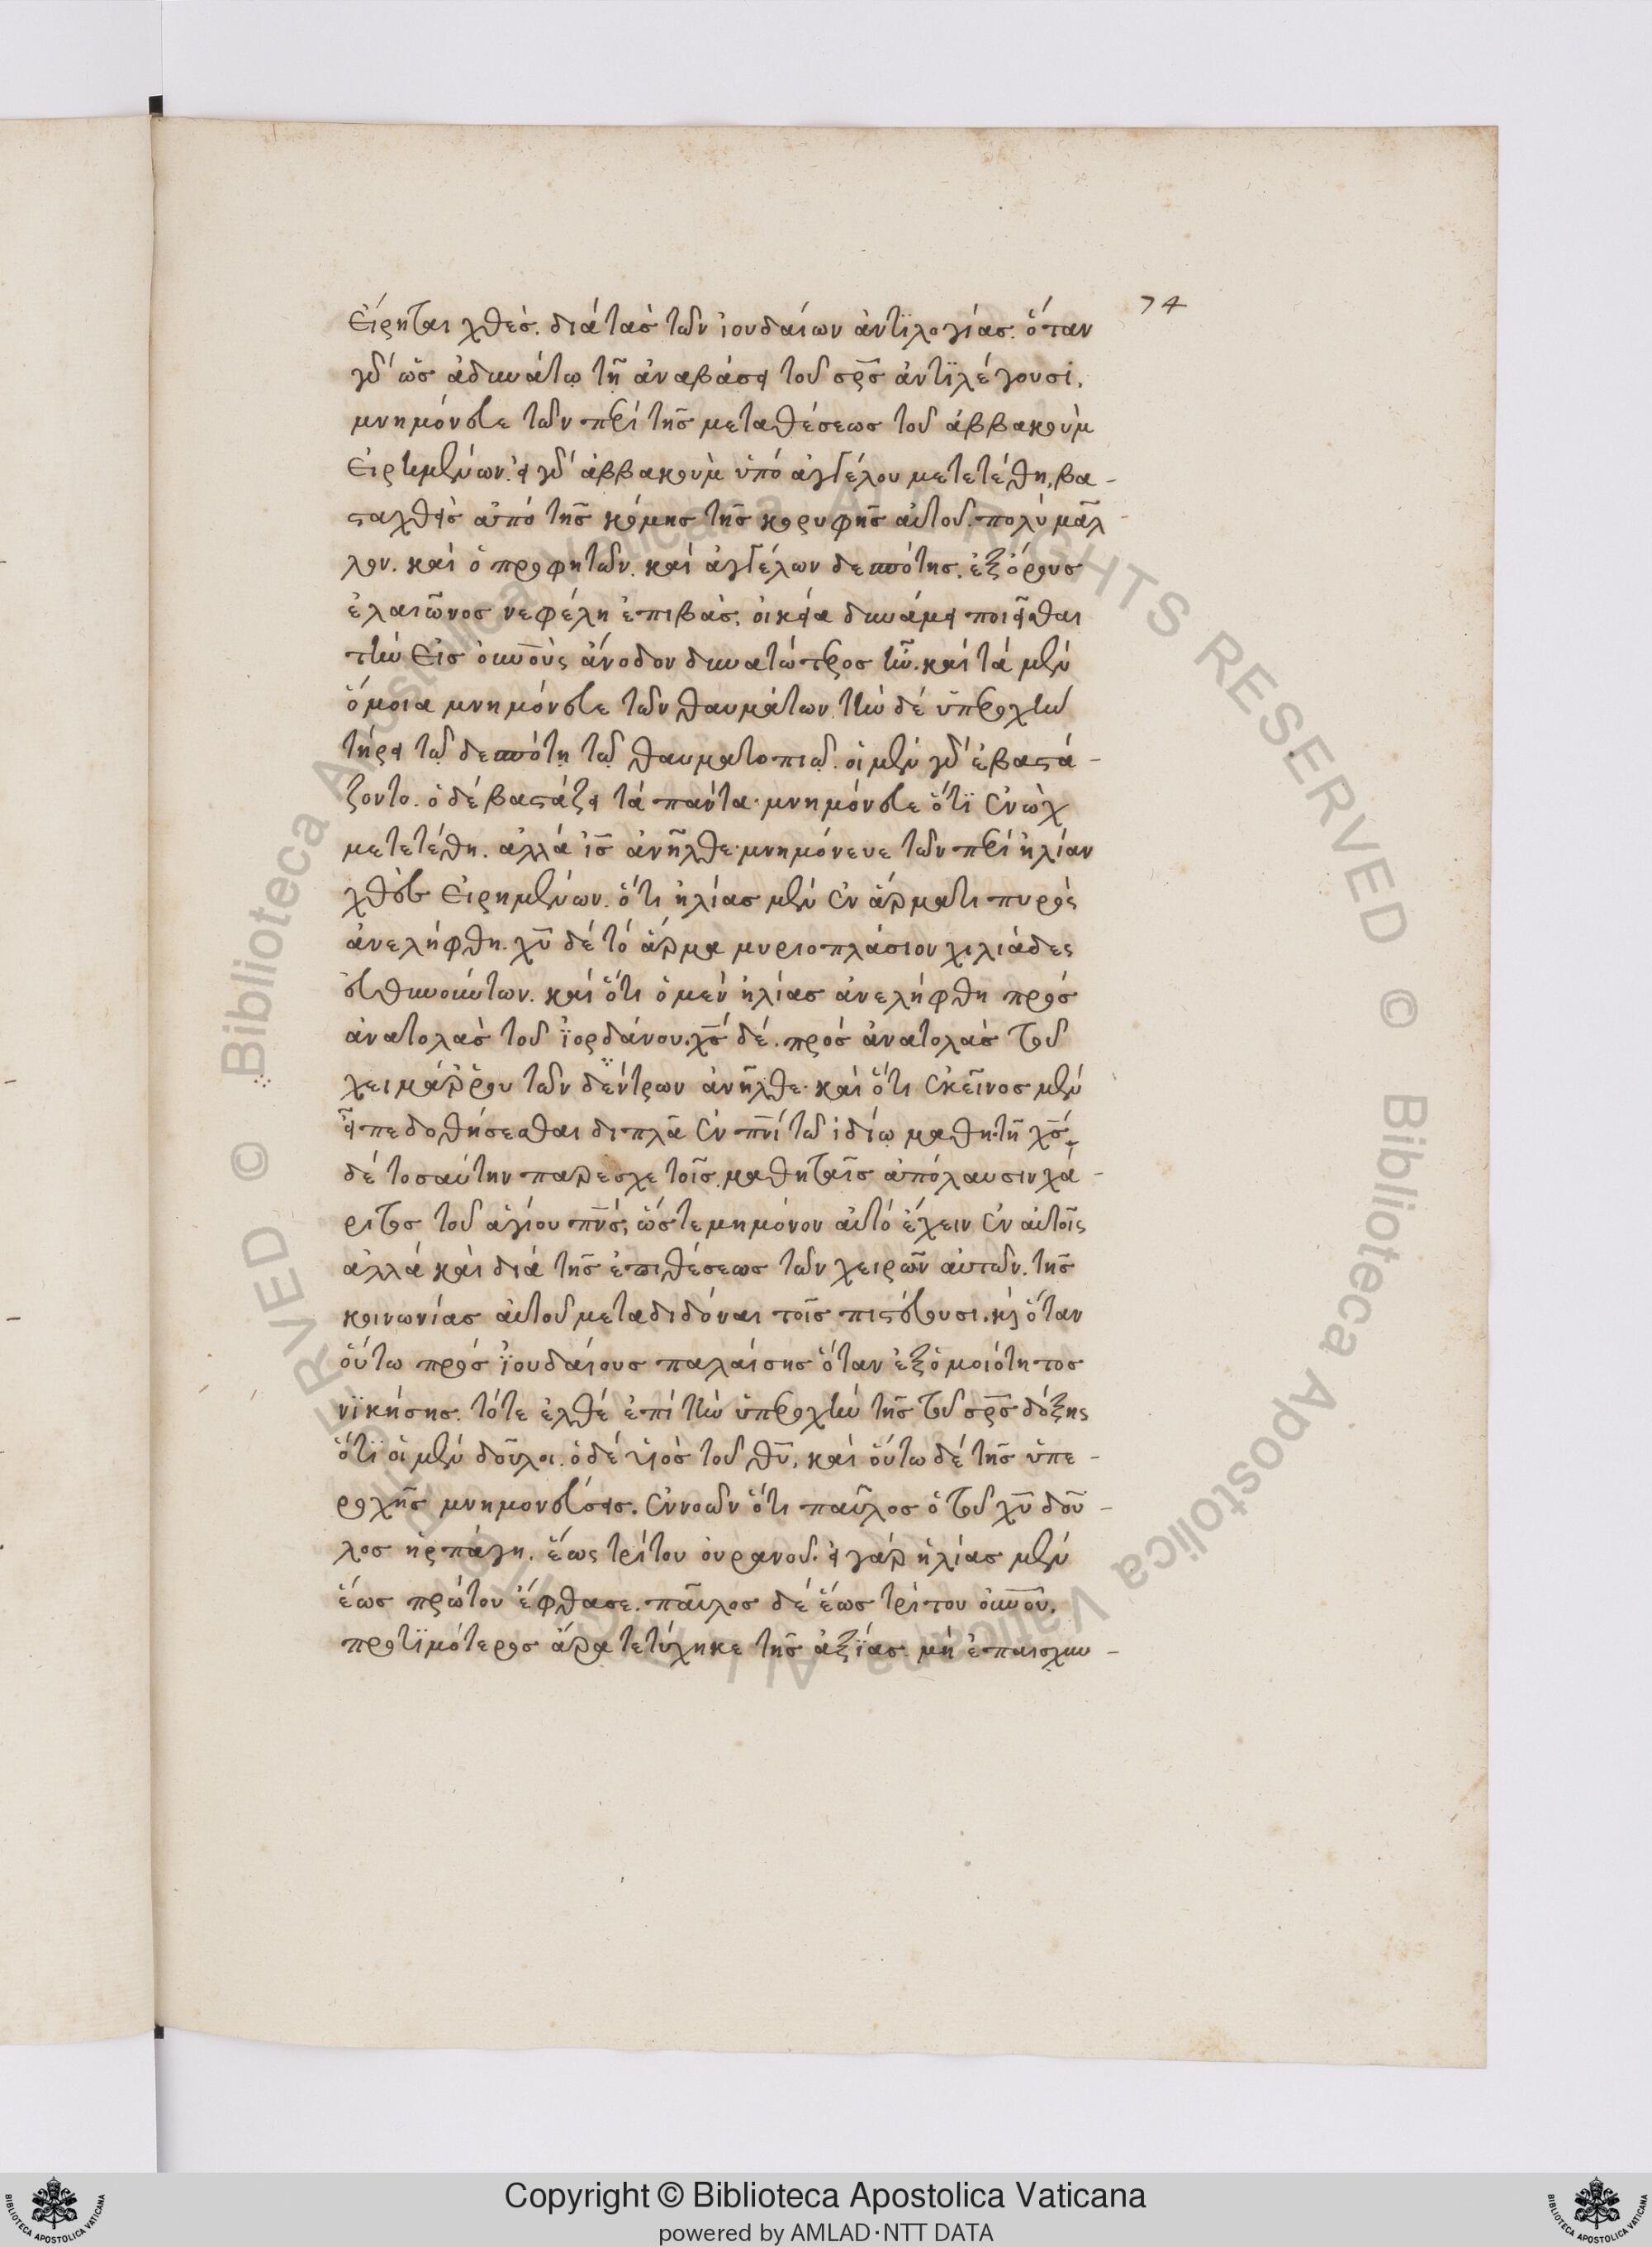 74
εἴρηται χθὲς. διὰ τὰς τῶν ἰουδαίων ἀντϊλογίας. ὅταν
γὰρ ὡς ἀδυνάτω τῆ ἀναβάσει τοῦ σρ̅ς ἀντϊλέγουσι,
μνημόνευε τῶν περὶ τῆς μεταθέσεως τοῦ ἀββακοὺμ
εἰρημένων. εἰ γὰρ ἀββακοὺμ ὑπὸ ἀγγέλου μετετέθη, βα-
σταχθεὶς ἀπὸ τῆς κόμης τῆς κορυφῆς αὐτοῦ. πολὺ μᾶλ-
λον. καὶ ὁ προφητῶν. καὶ ἀγγέλων δεσπότης. ἐξ ὄρους
ἐλαιῶνος νεφέλη ἐπιβὰς, οἰκεία δυνάμει ποιεῖσθαι
τὴν εἰς ο̅υ̅ν̅οὺς ἄνοδον δυνατώτερος ἦν. καὶ τὰ μὲν
ὅμοια μνημόνευε τῶν θαυμάτων. τὴν δὲ ὑπεροχὴν
τήρει τῶ δεσπότη τῶ θαυματοπιῶ. οἱ μὲν γὰρ ἐβαστά-
ζοντο. ὁ δὲ βαστάζει τὰ πάντα· μνημόνευε ὅτϊ ἐνὼχ
μετετέθη. ἀλλὰ ι̅ς ἀνῆλθε· μνημόνευε τῶν περὶ ἠλίαν
χθὲς εἰρημένων. ὅτι ἠλίας μὲν ἐν ἅρματι πυρὸς
ἀνελήφθη. χ̅υ δὲ τὸ ἅρμα μυριοπλάσιον χιλιάδες
εὐθηνούντων. καὶ ὅτι ὁ μὲν ἠλίας ἀνελήφθη πρὸς
ἀνατολὰς τοῦ ἰορδάνου. χ̅ς δὲ. πρὸς ἀνατολὰς τοῦ
χειμάρρου τῶν δέντρων ἀνῆλθε· καὶ ὅτι ἐκεῖνος μὲν
εἶπε δοθήσεσθαι διπλᾶ ἐν π̅ν̅ι τῶ ἰδίω μαθητῆ χ̅ς
δὲ τοσαύτην παρεσχε τοῖς μαθηταῖς ἀπόλαυσιν χά-
ριτος τοῦ ἁγίου π̅ν̅ς, ὥστε μημόνον αὐτὸ ἔχειν ἐν αὐτοῖς
ἀλλὰ καὶ διὰ τῆς ἐπιθέσεως τῶν χειρῶν αὐτῶν. τῆς
κοινωνίας αὐτοῦ μεταδιδόναι τοῖς πιστεύουσι. κ̀ ὅταν
οὕτω πρὸς ἰουδαίους παλαίσης ὅταν ἐξ ὁμοιότητος
νϊκήσης. τότε ἐλθὲ ἐπὶ τὴν ὑπεροχὴν τῆς τοῦ σρ̅ς δόξης
ὅτϊ οἱ μὲν δοῦλοι. ὁ δὲ υἱὸς τοῦ θ̅υ, καὶ οὕτω δὲ τῆς ὑπε-
ροχῆς μνημονεύσεις. ἐννοῶν ὅτι παῦλος ὁ τοῦ χ̅υ δοῦ-
λος ἡρπάγη. ἕως τρίτου οὐρανοῦ. εἰ γὰρ ἠλίας μὲν
ἕως πρώτου ἔφθασε. παῦλος δὲ ἕως τρίτου ο̅υ̅ν̅οῦ,
προτϊμότερος ἄρα τετύχηκε τῆς ἀξίας. μὴ ἐπαισχυν-
Copyright © Biblioteca Apostolica Vaticana
powered by AMLAD·NTT DATA